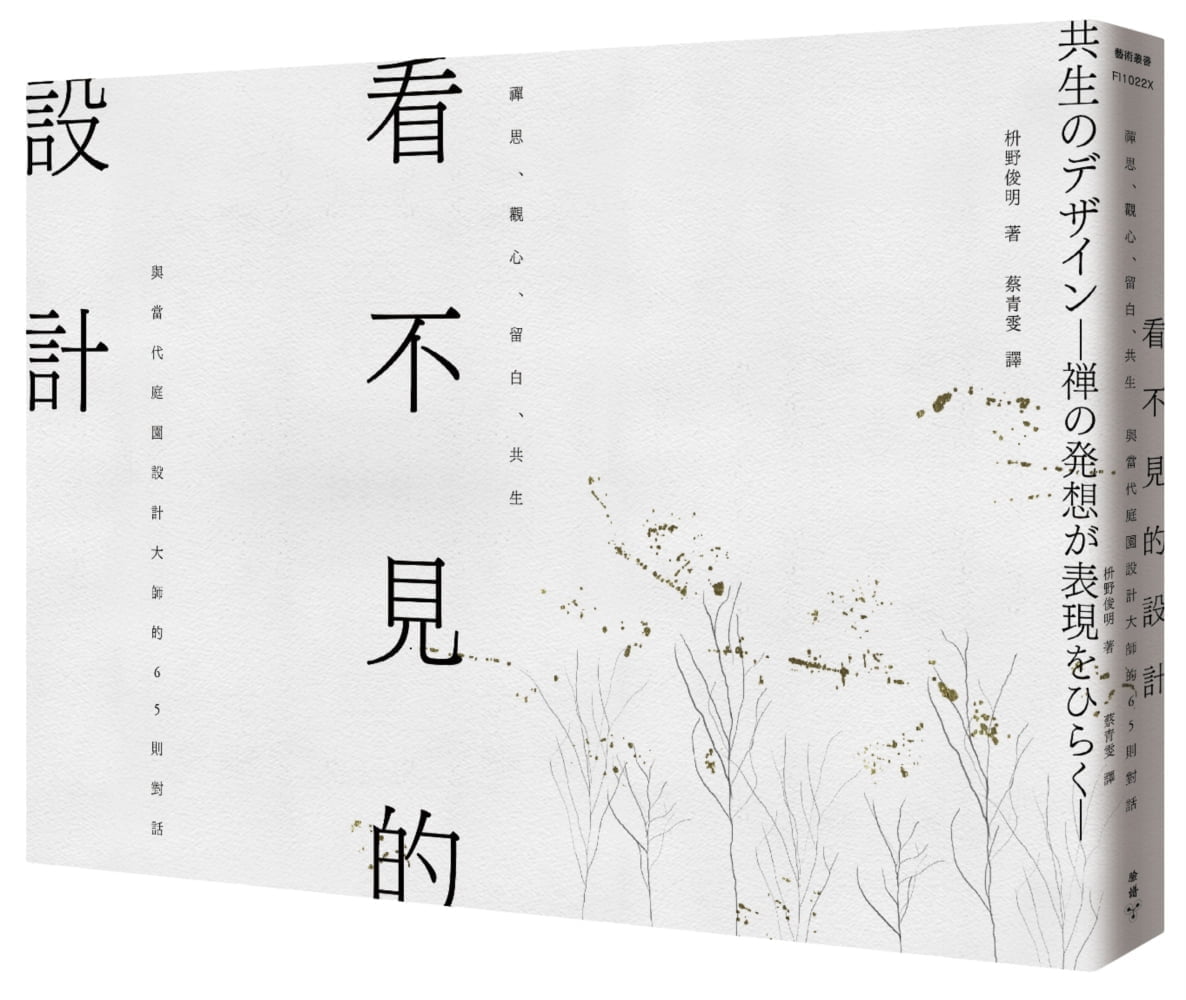 藝術叢書
FI1022X
禪思、觀心、留白、共生 與當代庭園設計大師的65則對話
看不見的設計
枡野俊明 著 蔡青雯 譯
臉譜
共生のデザイン—禅の発想が表現をひらく—
枡野俊明 著 蔡青雯 譯
禪思、觀心、留白、共生
看不見的
與當代庭園設計大師的65則對話
設計